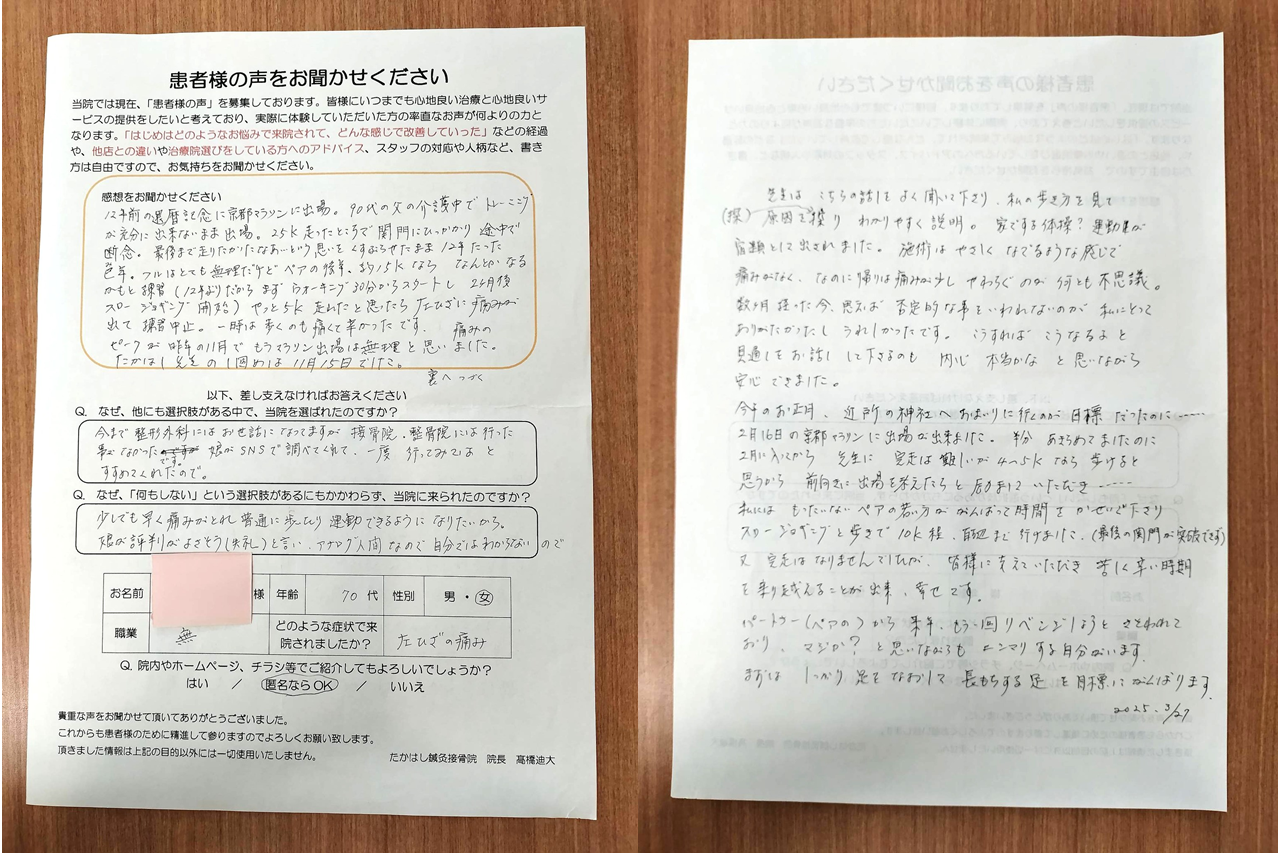 患者様の声をお聞かせください
当院では現在、「患者様の声」を募集しております。皆様にいつまでも心地良い治療と心地良いサ
ービスの提供をしたいと考えており、実際に体験していただいた方の率直なお声が何よりの力と
なります。「はじめはどのようなお悩みで来院されて、どんな感じで改善していった」などの経過
や、他店との違いや治療院選びをしている方へのアドバイス、スタッフの対応や人柄など、書き
方は自由ですので、お気持ちをお聞かせください。
感想をお聞かせください
12年前の還暦記念に京都マラソンに出場。90代の父の介護中でトレーニング
が充分に出来ないまま出場。25k走ったところで関門にひっかかり途中で
断念。最後まで走りたかったなあという思いをくすぶらせたまま12年たった
色年。フルはとても無理だけどペアの後半、約15kなら なんとかなる
かもと練習(12年ぶりだからまずウォーキング30分からスタートし 2ヶ月後
スロージョギング開始)やっと5k走れたと思ったら左ひざに痛みが
出て練習中止。一時は歩くのも痛くて辛かったです。 痛みの
ピークが昨年の11月でもうマラソン出場は無理と思いました。
たかはし先生の1回めは11月15日でした。
裏へつづく
以下、差し支えなければお答えください
Q. なぜ、他にも選択肢がある中で、当院を選ばれたのですか?
今まで整形外科にはお世話になってますが接骨院・整骨院には行った
事がなかったです。娘がSNSで調べてくれて、一度行ってみてはと
すすめてくれたので。
Q. なぜ、「何もしない」という選択肢があるにもかかわらず、当院に来られたのですか?
少しでも早く痛みがとれ普通に歩いたり運動できるようになりたいから。
娘が評判がよさそう(失礼)と言い、アナログ人間なので自分ではわからないので
お名前 様 年齢 70代 性別 男・女
職業 無 どのような症状で来院されましたか? 左ひざの痛み
Q. 院内やホームページ、チラシ等でご紹介してもよろしいでしょうか?
はい / 匿名ならOK / いいえ
貴重な声をお聞かせて頂いてありがとうございました。
これからも患者様のために精進して参りますのでよろしくお願い致します。
頂きました情報は上記の目的以外には一切使用いたしません。
たかはし鍼灸接骨院 院長 高橋迪大
先生は こちらの話しをよく聞いて下さり、私の歩き方を見て
(探) 原因を探り わかりやすく説明。 家でする体操?運動等が
宿題として出されました。 施術はやさしくなでるような感じで
痛みがなく、なのに帰りは痛みが少しやわらぐのが何とも不思議。
数ヶ月経った今、思えば否定的な事をいわれないのが私にとって
ありがたかったし うれしかったです。 こうすればこうなるよと
見通しをお話しして下さるのも 内心 本当かなと思いながら
安心できました。
今年のお正月、近所の神社へおまいりに行くのが目標だったのに……
2月16日の京都マラソンに出場が出来ました。半分あきらめてましたのに
2月に入ってから 先生に 完走は難しいが4つ5kなら歩けると
思うから 前向きに出場を考えたらと励ましていただき……
私には もったいないペアの若い方ががんばって時間をかせいで下さり
スロージョギングと歩きで10k程、 まで行けました。(最後の関門が突破できず)
又 完走はなりませんでしたが、皆様に支えていただき 苦しく辛い時期
を乗り越えることが出来、幸せです。
パートナー(ペアの)から 来年、もう一回リベンジしようとさそわれて
おり、マジか?と思いながらも ニンマリする自分がいます。
まずは しっかり足をなおして 長もちする足を目標にがんばります。
2025.3/27